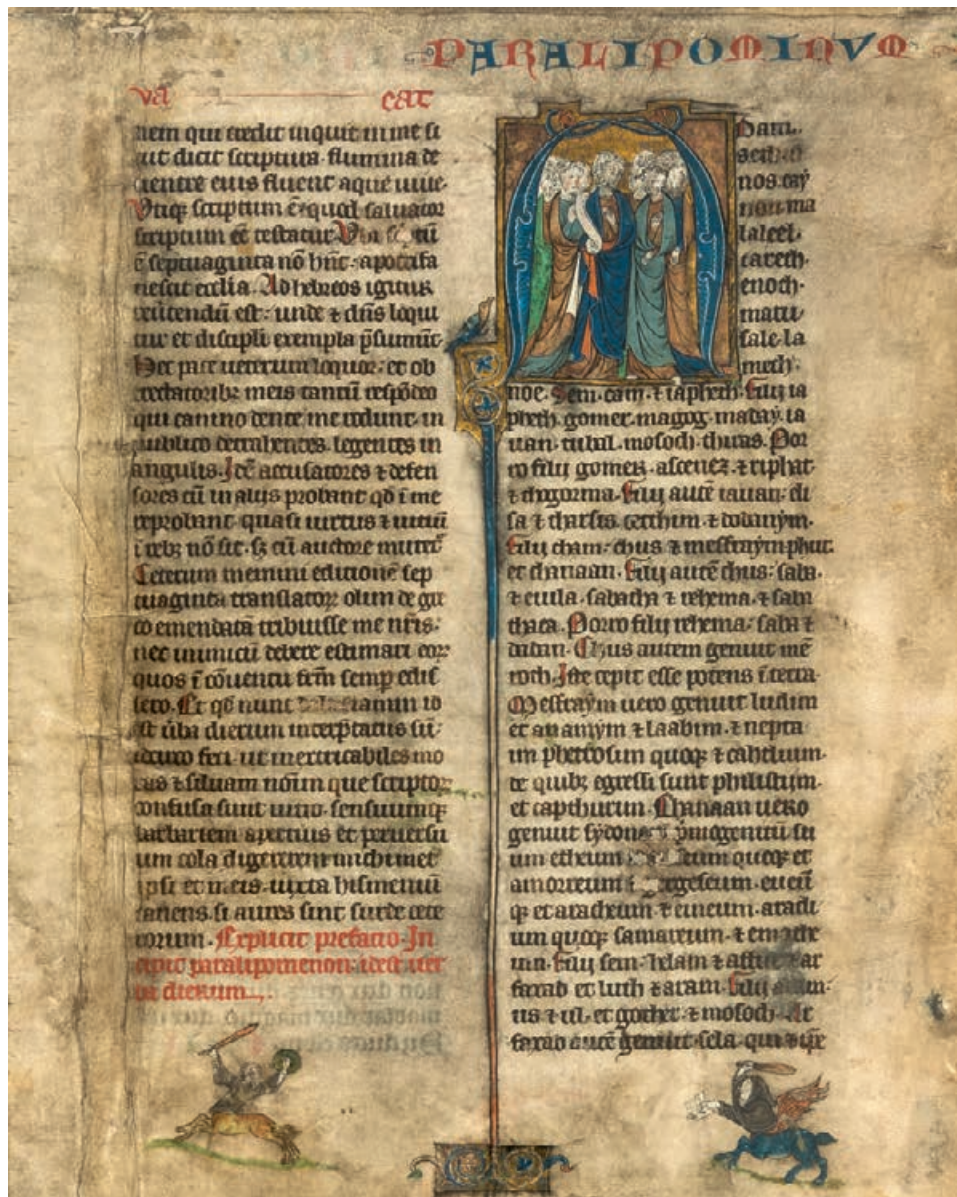 PARALIPOMINVM
va cat
nem qui credit inquit in me si
cut dicit scriptura. flumina de
uentre eius fluent aque uiue.
Vtiqz scriptum ē. quod saluator
scriptum eē testatur. Vbi
ē septuaginta nō hnt. apocrifa
nescit ecclia. Ad hebreos igitur
est. unde & dñs loqui
tur et discipli exempla
Hec pace ueterum loquor. et ob
trectatoribz meis tantū respōdeo
qui canino dente me rodunt. in
publico detrahentes. legentes in
angulis. Idē accusatores & defen
sores cū in aliis probant qd ī me
reprobant. quasi uirtus & uitiū
ī rebz nō sit. sz cū auctore
Ceterum memini editionē sep
tuaginta translatorz olim de gre
co emendatā tribuisse me nr̄is.
nec inimicū debere estimari eorz
quos ī cōuentu semp edis
sero. Et qd nunc iamin id
est ūba dierum sū.
idcirco feci. ut inextricabiles mo
ras & siluam noīm que scriptorz
confusa sunt uitio. sensuumqz
barbariem apertius et per uersu
um cola digererem michimet
ipsi et meis. iuxta hismeniū
canens. si aures sint surde cete
rorum. Explicit prefatio. In
cipit paralipomenon. idest uer
ba dierum.
dam.
seth.
nos. cay
nan. ma
laleel.
iareth.
enoch.
matu
sale. la
mech.
noe. Sem. cam. & iapheth. Filij ia
pheth. gomer. magog. maday. ia
uan. tubal. mosoch. thiras. Por
ro filij gomer. ascenez. & riphat
& thogorma. Filij autē iauan. eli
sa & tharsis. cetthim. & dodanym.
Filij cham. chus & mesraym phut.
et chanaan. Filij autē chus. saba.
& euila. sabatha & rehema. & saba
thaca. Porro filij rehema. saba &
dadan. Chus autem genuit nē
roth. Iste cepit esse potens ī terra
Mesraym uero genuit ludim
et anamym & laabim. & nepta
im phetrosim quoqz & casluim.
de quibz egressi sunt philistiim.
et capthurim. Chanaan uero
genuit sydonē pmogenitū su
um etheum quoqz et
amorreum & gergeseum. eueū
qz et aracheum. & cineum. aradi
um quoqz samareum. & emathe
um. Filij sem. helam & assur & ar
faxad et luth & aram. Filij aram.
us & ul. et gother. & mosoch. Ar
faxad autē genuit. sela. qui & ipe